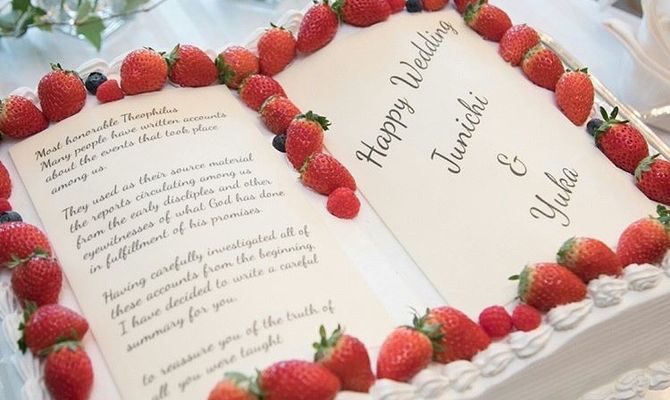 Most honorable Theophilus
Many people have written accounts
about the events that took place
among us.
They used as their source material
the reports circulating among us
from the early disciples and other
eyewitnesses of what God has done
in fulfillment of his promises.
Having carefully investigated all of
these accounts from the beginning,
I have decided to write a careful
summary for you.
to reassure you of the truth of
all you were taught
Happy Wedding
Junichi
&
Yuka